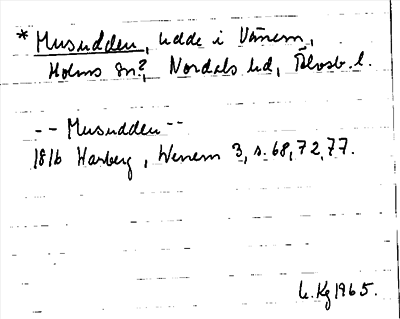 * Musudden, udde i Vänern,
Holms sn?, Nordals hd, Älvsb. l.
-- Musudden --
1816 Harberg, Wenern 3, s. 68, 72, 77.
L. Kg 1965.